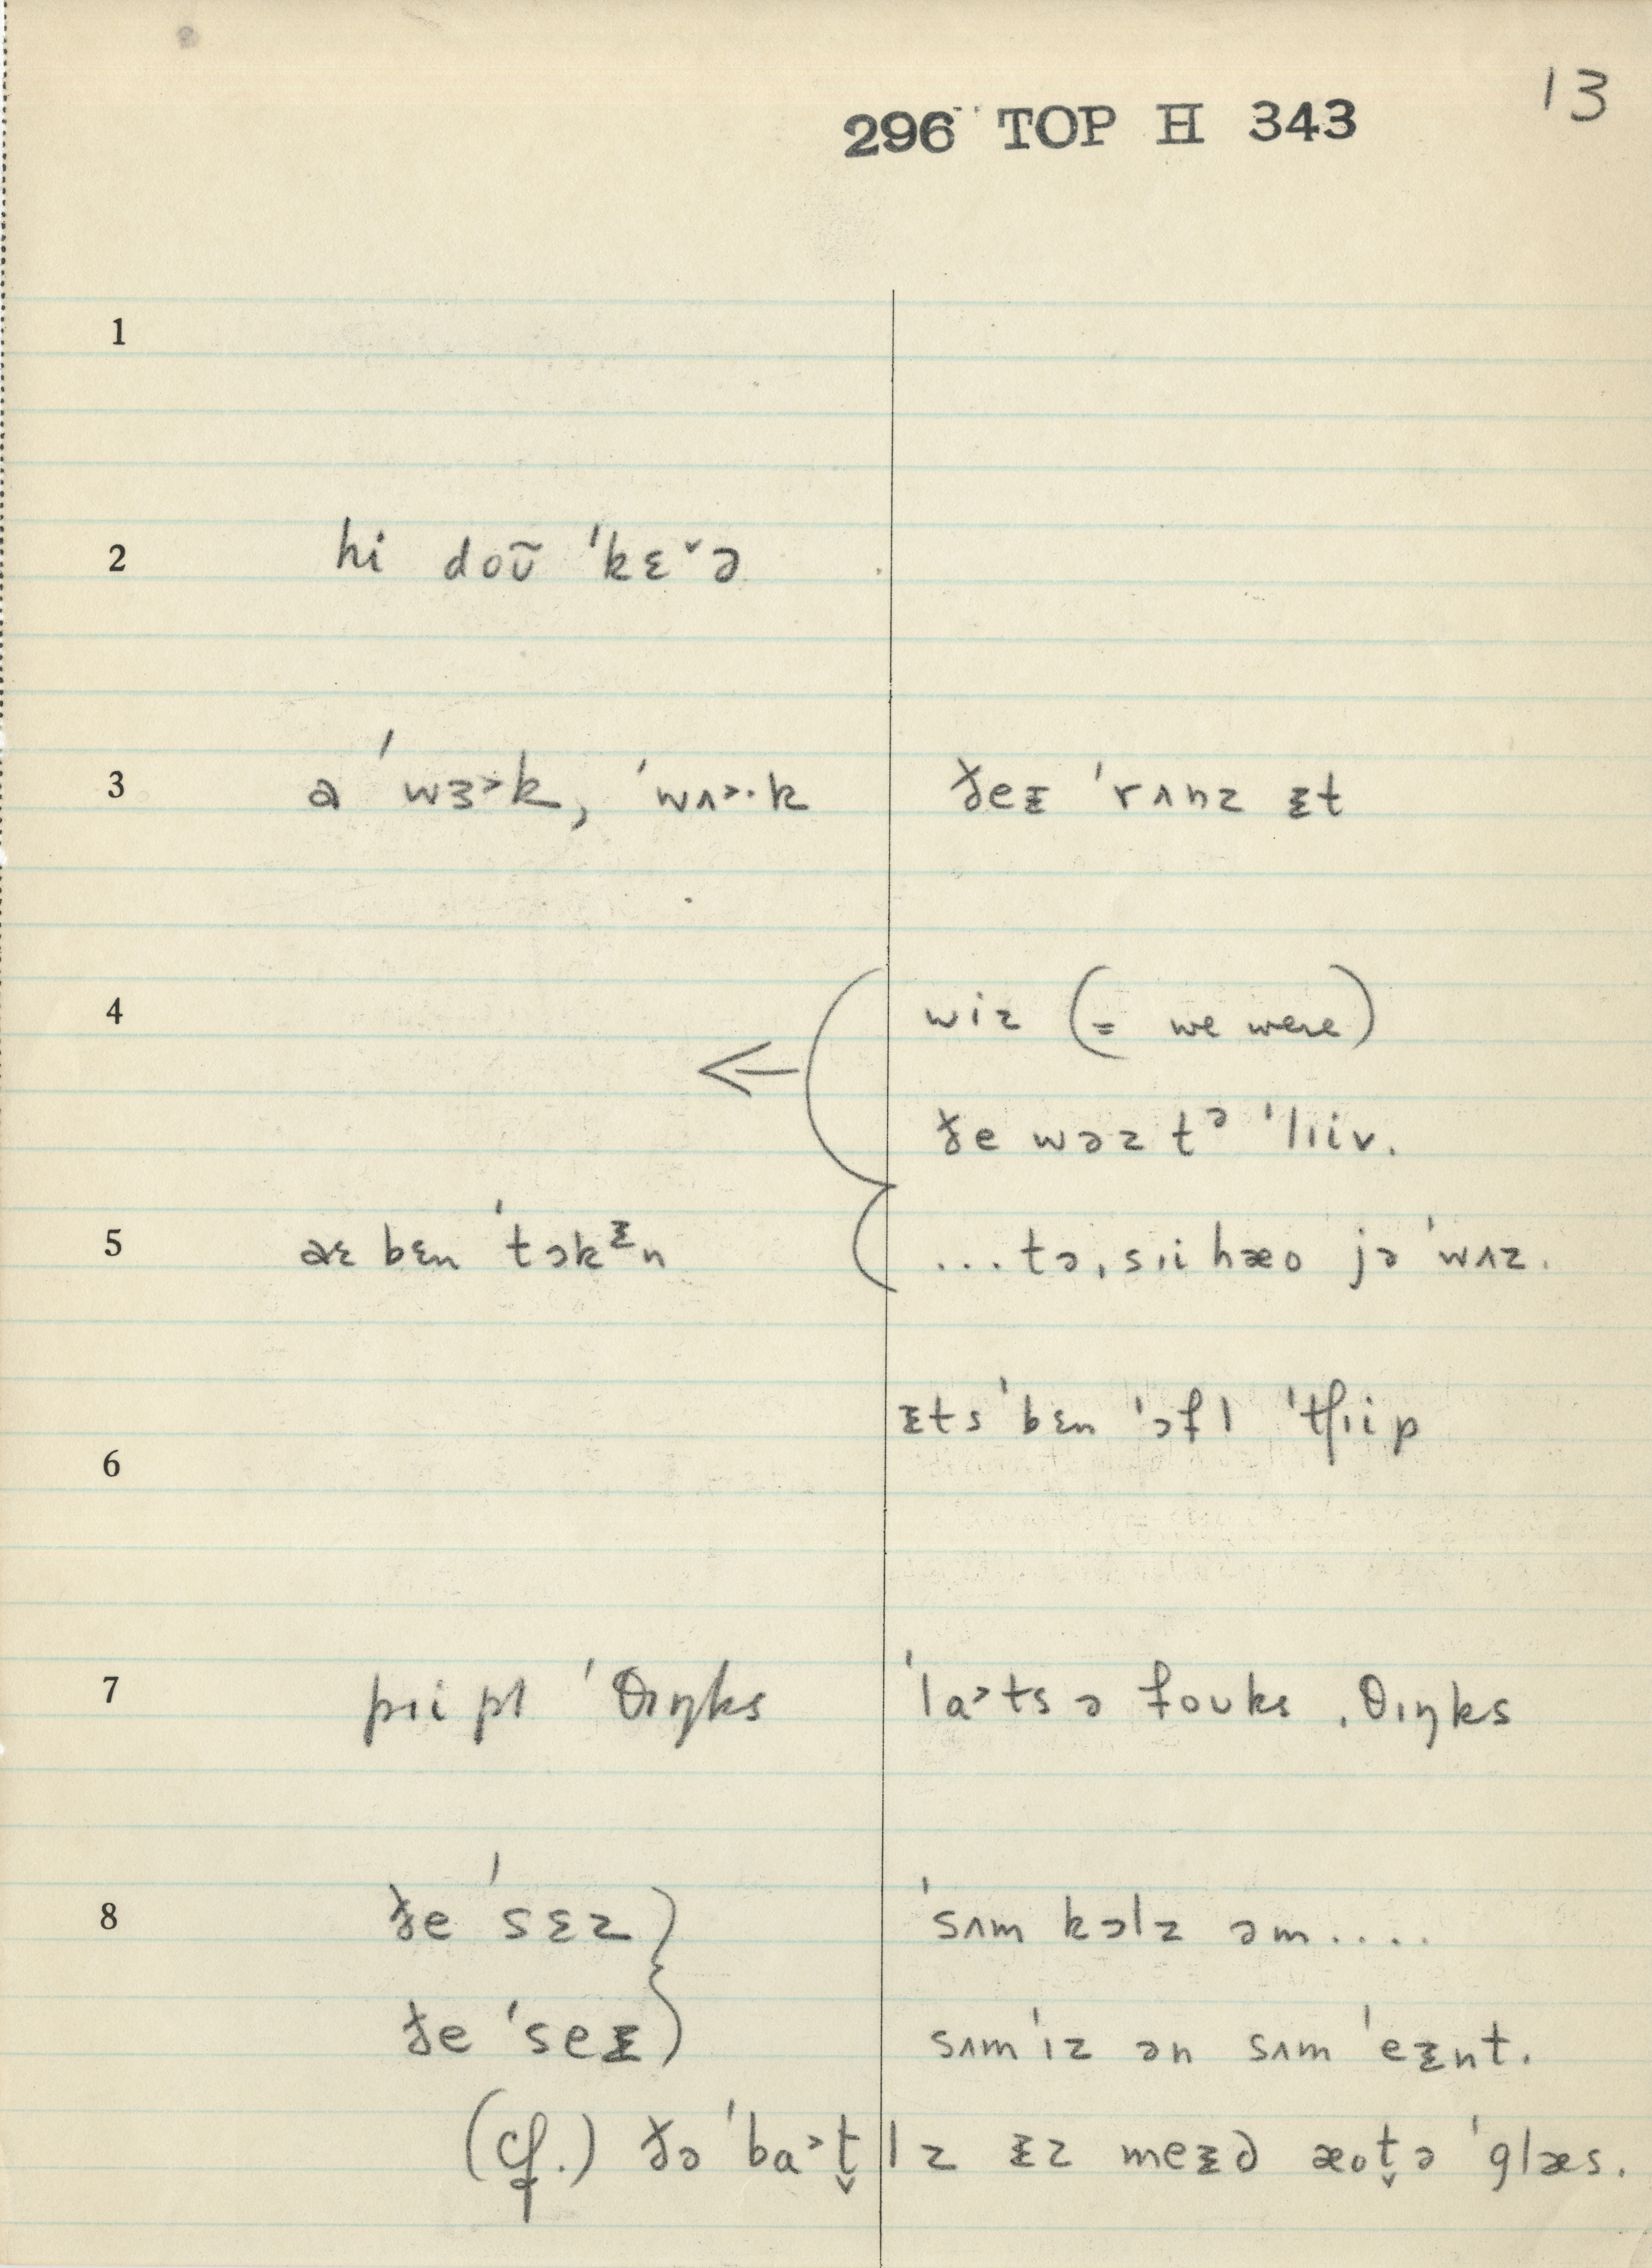 13
296 TOP H 343
1
2 hi doʊ̃ ˈkɛˇə
3 ə ˈwɜ˃k, ˈwʌ˃·k ðeᵻ ˈrʌnz ᵻt
4 wiz (= we were)
ðe wəz tᵊ ˈlɪiv.
5 aɛ bɛn ˈtɔkᵻn ...tə ˌsɪi hæo jə ˈwʌz.
ᵻts ˈbɛn ˈɔfl ˈtʃɪip
6
7 pɪipl ˈθɪŋks ˈla˃ts ə foʊks ˌθɪŋks
8 ðe ˈsɛz ˈsʌm kɔlz əm....
ðe ˈseᵻ sʌm ˈɪz ən sʌm ˈeᵻnt.
(cf.) ðə ˈba˃t̬lz ᵻz meᵻd æot̬ə ˈglæs.